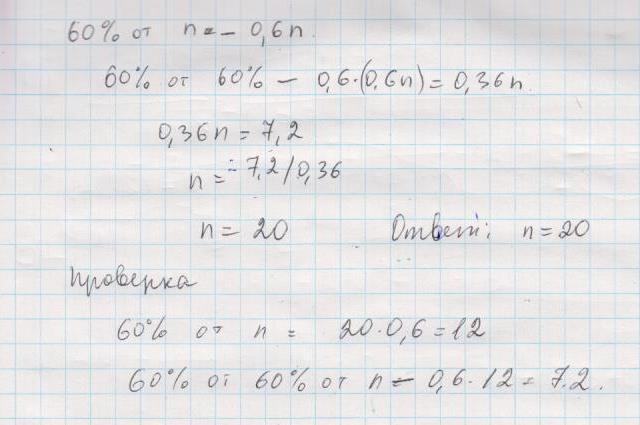 60% от n = – 0,6n.
60% от 60% – 0,6·(0,6n) = 0,36n.
0,36n = 7,2
n = 7,2/0,36
n = 20 Ответ: n = 20
Проверка
60% от n = 20·0,6 = 12
60% от 60% от n – 0,6·12 = 7.2.